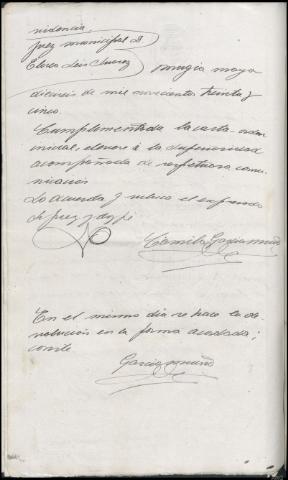 videncia
Juez municipal D.
Eloca Luis Suarez Brugia mayo
dieciseis de mil novecientos treinta y
cinco.
Cumplimentada la carta-orden
inicial, elevese á la superioridad
acompañada de respetuosa comu-
nicacion
Lo acuerda y rubrica el expresado
Sr. juez y doy fe
Camilo Garcia
En el mismo dia se hace la de-
volucion en la forma acordada;
conste
Garcia